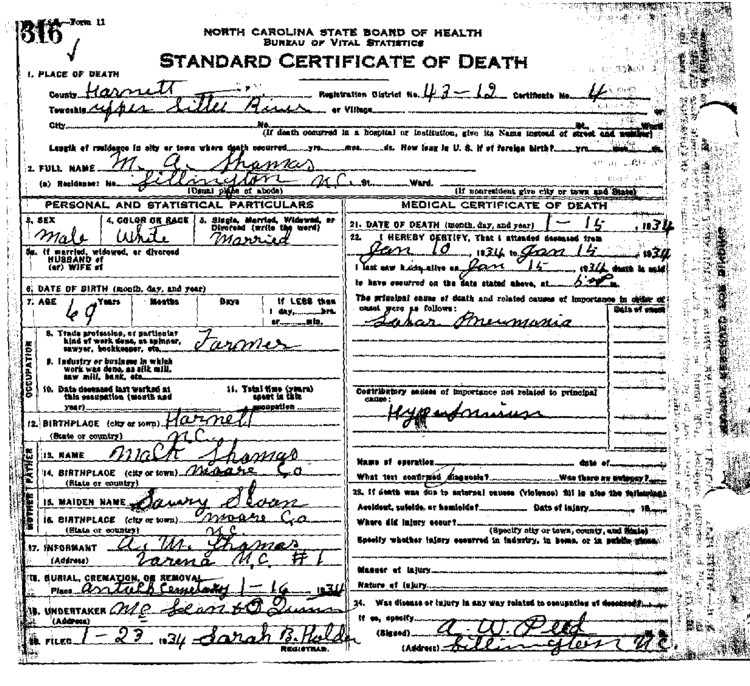 316
Form 11
NORTH CAROLINA STATE BOARD OF HEALTH
BUREAU OF VITAL STATISTICS
STANDARD CERTIFICATE OF DEATH
1. PLACE OF DEATH
County Harnett Registration District No. 43-12 Certificate No. 4
Township Upper Little River or Village or
City No. St. Ward
(If death occurred in a hospital or institution, give its Name instead of street and number)
Length of residence in city or town where death occurred yrs. mos. ds. How long in U. S. if of foreign birth? yrs. mos. ds.
2. FULL NAME M. A. Thomas
(a) Residence: No. Lillington N.C. St. Ward.
(Usual place of abode) (If nonresident give city or town and State)
PERSONAL AND STATISTICAL PARTICULARS
3. SEX 4. COLOR OR RACE 5. Single, Married, Widowed, or Divorced (write the word)
Male White Married
5a. If married, widowed, or divorced
HUSBAND of
(or) WIFE of
6. DATE OF BIRTH (month, day, and year)
7. AGE Years Months Days If LESS than
69 1 day, hrs.
or min.
OCCUPATION
8. Trade profession, or particular
kind of work done, as spinner,
sawyer, bookkeeper, etc. Farmer
9. Industry or business in which
work was done, as silk mill,
saw mill, bank, etc.
10. Date deceased last worked at
this occupation (month and
year)
11. Total time (years)
spent in this
occupation
12. BIRTHPLACE (city or town) Harnett
(State or country) N.C.
FATHER
13. NAME Mack Thomas
14. BIRTHPLACE (city or town) Moore Co
(State or country)
MOTHER
15. MAIDEN NAME Sloan
16. BIRTHPLACE (city or town) Moore Co
(State or country) N.C.
17. INFORMANT A. M. Thomas
(Address) Varina N.C. #1
18. BURIAL, CREMATION, OR REMOVAL
Place Cemetary 1-16 1934
19. UNDERTAKER
(Address)
20. FILED 1-23 1934 Sarah B. Holder
REGISTRAR.
MEDICAL CERTIFICATE OF DEATH
21. DATE OF DEATH (month, day, and year) 1-15, 1934
22. I HEREBY CERTIFY, That I attended deceased from
Jan 10 1934 to Jan 15 1934
I last saw him alive on Jan 15 1934 death is said
to have occurred on the date stated above, at m.
The principal cause of death and related causes of importance in order of
onset were as follows: Date of onset
Lobar Pneumonia
Contributory causes of importance not related to principal
cause:
Name of operation date of
What test confirmed diagnosis? Was there an autopsy?
23. If death was due to external causes (violence) fill in also the following:
Accident, suicide, or homicide? Date of injury 19
Where did injury occur?
(Specify city or town, county, and State)
Specify whether injury occurred in industry, in home, or in public place.
Manner of injury
Nature of injury
24. Was disease or injury in any way related to occupation of deceased?
If so, specify
(Signed) A. W. Peed
(Address) Lillington N.C.